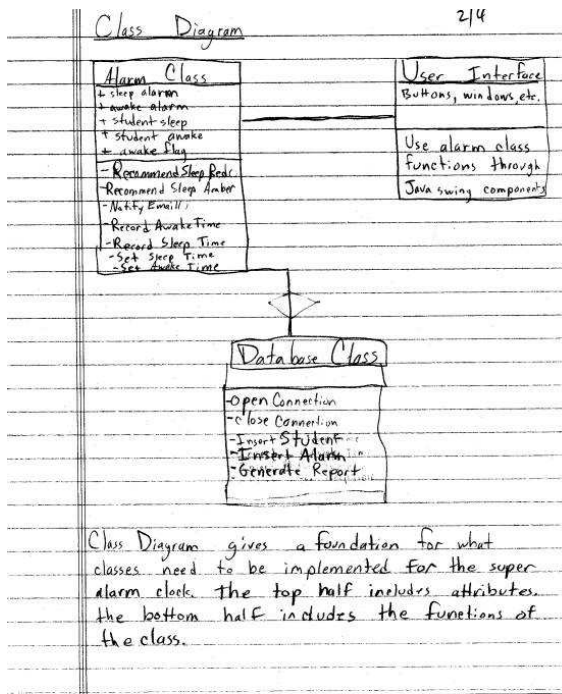 2/4
Class Diagram
Alarm Class
+ sleep alarm
+ awake alarm
+ student sleep
+ student awake
+ awake flag
- Recommend Sleep Red
- Recommend Sleep Amber
- Notify Email
- Record Awake Time
- Record Sleep Time
- Set Sleep Time
- Set Awake Time
User Interface
Buttons, windows, etc.
Use alarm class
functions through
Java swing components
Database Class
- Open Connection
- Close Connection
- Insert Student
- Insert Alarm
- Generate Report
Class Diagram gives a foundation for what
classes need to be implemented for the super
alarm clock. The top half includes attributes.
the bottom half includes the functions of
the class.